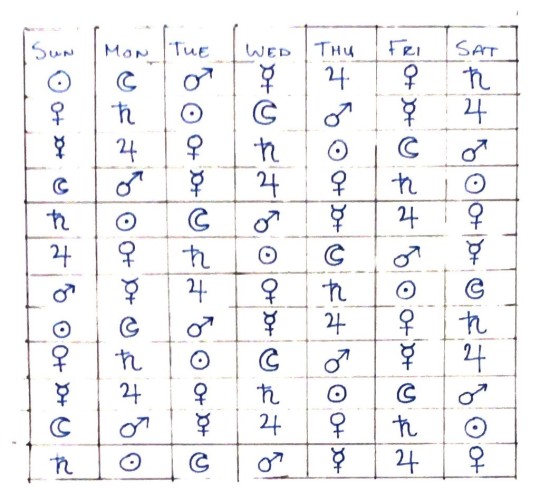 SUN MON TUE WED THU FRI SAT
☉ ☾ ♂ ☿ ♃ ♀ ♄
♀ ♄ ☉ ☾ ♂ ☿ ♃
☿ ♃ ♀ ♄ ☉ ☾ ♂
☾ ♂ ☿ ♃ ♀ ♄ ☉
♄ ☉ ☾ ♂ ☿ ♃ ♀
♃ ♀ ♄ ☉ ☾ ♂ ☿
♂ ☿ ♃ ♀ ♄ ☉ ☾
☉ ☾ ♂ ☿ ♃ ♀ ♄
♀ ♄ ☉ ☾ ♂ ☿ ♃
☿ ♃ ♀ ♄ ☉ ☾ ♂
☾ ♂ ☿ ♃ ♀ ♄ ☉
♄ ☉ ☾ ♂ ☿ ♃ ♀